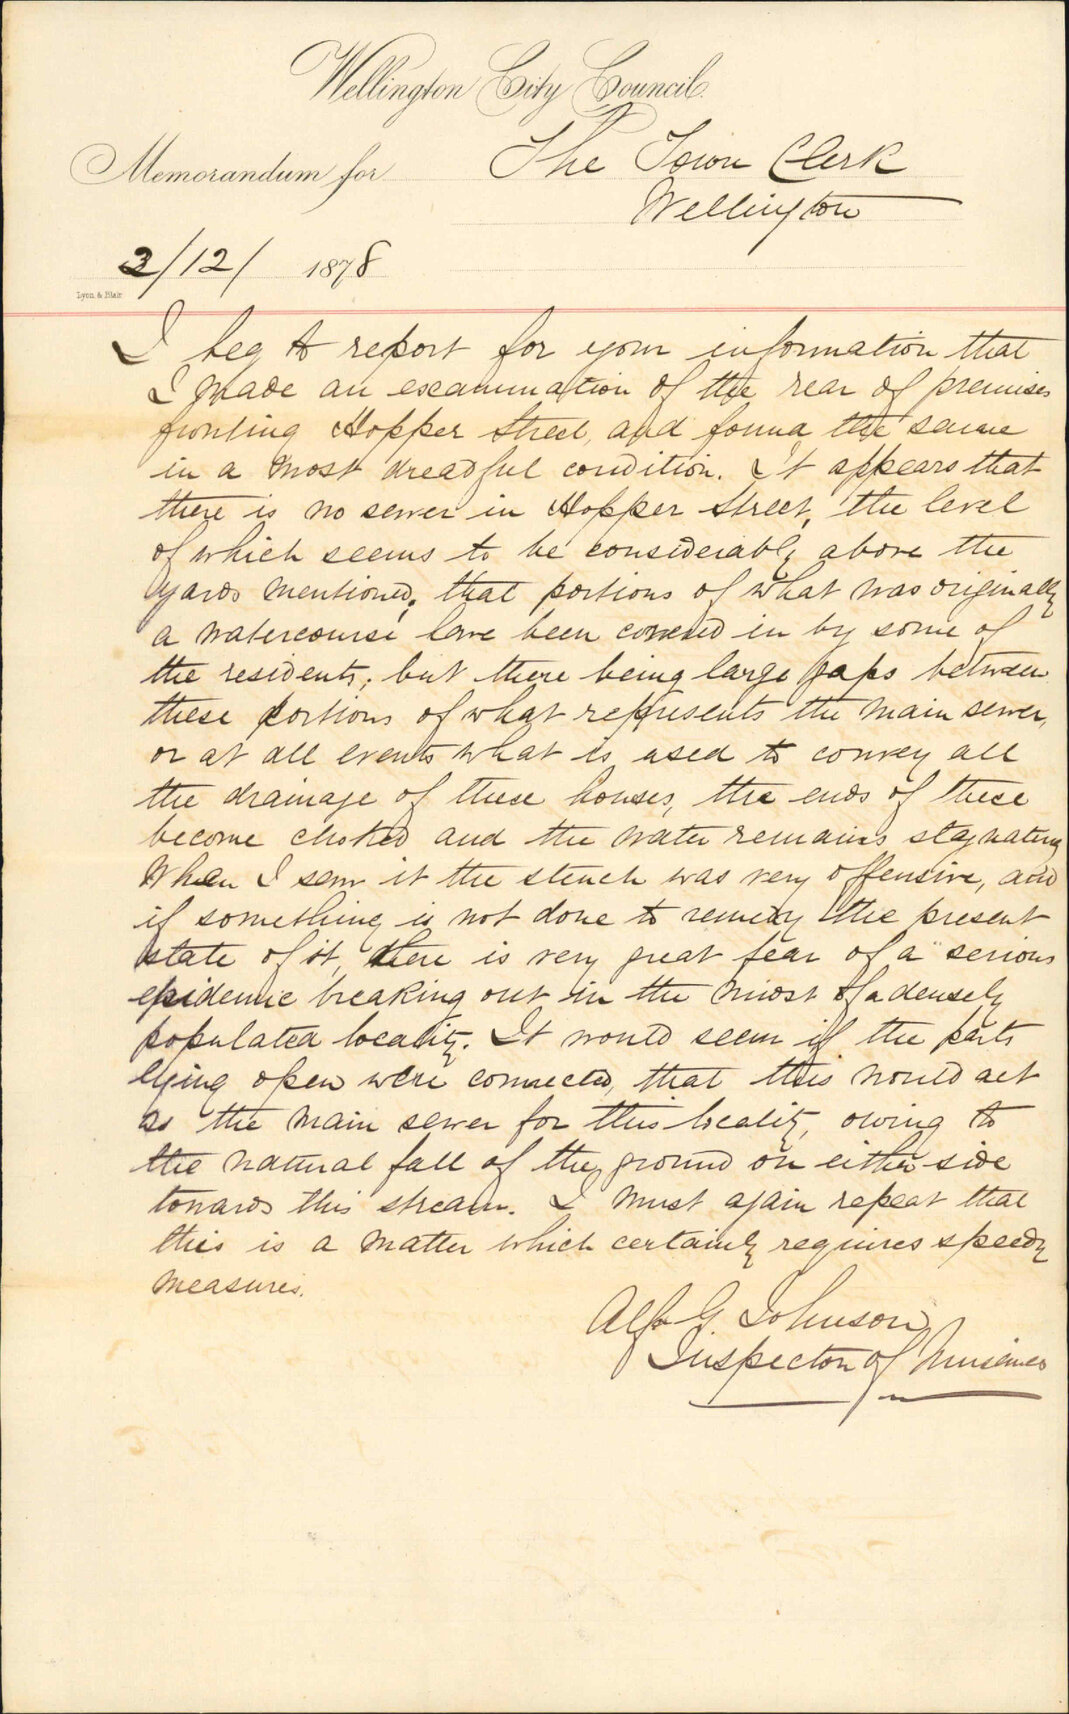 Wellington City Council.
Memorandum for The Town Clerk
Wellington
3/12/ 1878
Lyon & Blair
I beg to report for your information that
I made an examination of the rear of premises
fronting Hopper Street, and found the same
in a most dreadful condition. It appears that
there is no sewer in Hopper Street, the level
of which seems to be considerably above the
yards mentioned, that portions of what was originally
a watercourse have been covered in by some of
the residents; but there being large gaps between
these portions of what represents the main sewer,
or at all events what is used to convey all
the drainage of these houses, the ends of these
become choked and the water remains stagnating
When I saw it the stench was very offensive, and
if something is not done to remedy the present
state of it, there is very great fear of a serious
epidemic breaking out in the midst of a densely
populated locality. It would seem if the parts
lying open were connected, that this would act
as the main sewer for this locality, owing to
the natural fall of the ground on either side
towards this stream. I must again repeat that
this is a matter which certainly requires speedy
measures.
Alf G. Johnson
Inspector of Nusiances